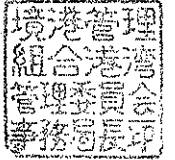 境港管理
組合港湾
管理委員会
事務局長印